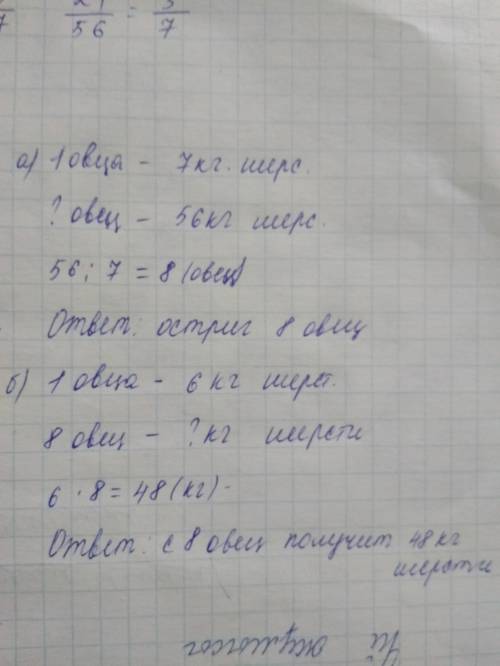 56 = 7
а) 1 овца - 7 кг. шерс.
? овец - 56 кг шерс.
56 : 7 = 8 (овец)
Ответ: остриг 8 овец
б) 1 овца - 6 кг шерст.
8 овец - ? кг шерсти
6 · 8 = 48 (кг) -
Ответ: с 8 овец получит 48 кг
шерсти